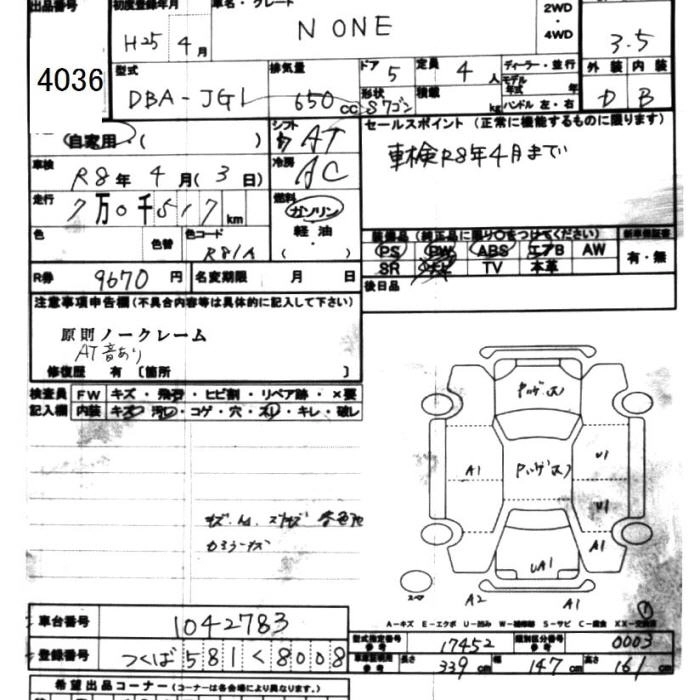 出品番号 初度登録年月 車名・グレード 2WD・4WD
H25年4月 N ONE 3.5
4036
型式 排気量 ドア 5 定員 4人 ディーラー・並行 外装 内装
DBA-JG1 650cc 形状 Sワゴン 積載 kg モデル年式 年 ハンドル 左・右 D B
自家用・( ) シフト AT セールスポイント(正常に機能するものに限ります)
車検 R8年4月(3日) 冷房 AC 車検R8年4月まで
走行 7万0千517km 燃料 ガソリン
色 色替 色コード R81A 軽油・( )
装備品(純正品に限り○をつけてください) 新車保証書
PS PW ABS エアB AW 有・無
SR ナビ TV 本革
R券 9670円 名変期限 月 日 後日品
注意事項申告欄(不具合内容等は具体的に記入して下さい)
原則ノークレーム
AT音あり
修復歴 有〔箇所 〕
検査員 FW キズ・飛石・ヒビ割・リペア跡・×要
記入欄 内装 キズ・汚れ・コゲ・穴・スレ・キレ・破レ
A1
U1
U1
A1
UA1
A2 A1
A-キズ E-エクボ U-凹み W-補修跡 S-サビ C-腐食 XX-交換済
車台番号 1042783
型式指定番号 参考 17452 類別区分番号 参考 0003
登録番号 つくば 581 く 8008
車庫証明用 参考 長さ 339cm 幅 147cm 高さ 161cm
希望出品コーナー(コーナーは各会場により異なります。)